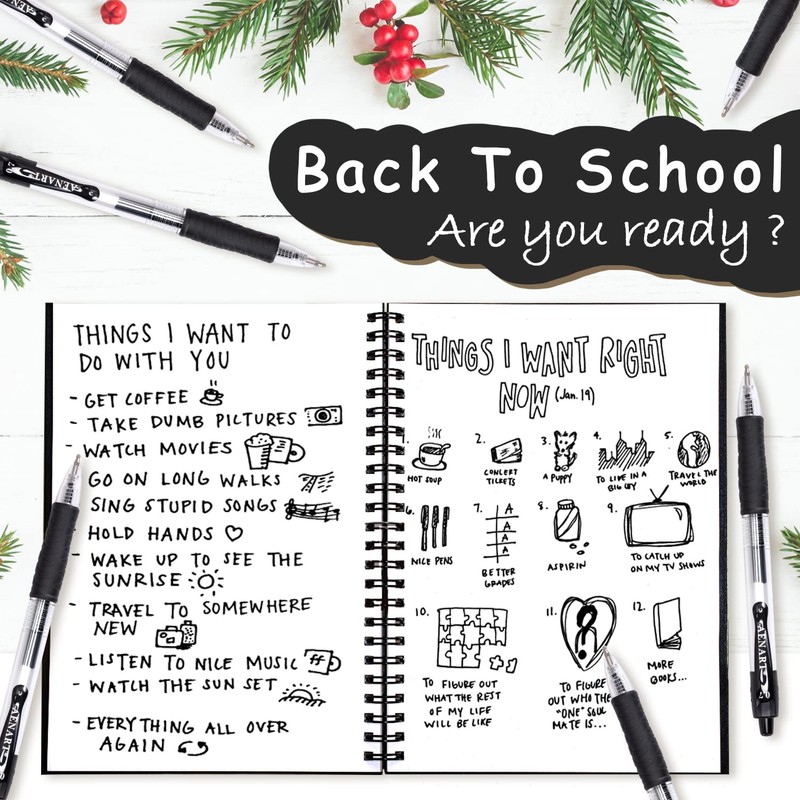 Back To School
Are you ready ?
AENART
AENART
THINGS I WANT TO
DO WITH YOU
- GET COFFEE
- TAKE DUMB PICTURES
- WATCH MOVIES
GO ON LONG WALKS
SING STUPID SONGS
HOLD HANDS
- WAKE UP TO SEE THE
SUNRISE
- TRAVEL TO SOMEWHERE
NEW
- LISTEN TO NICE MUSIC
- WATCH THE SUN SET
- EVERYTHING ALL OVER
AGAIN
THINGS I WANT RIGHT
NOW (Jan. 19)
1. HOT SOUP
2. CONCERT
TICKETS
3. A PUPPY
4. TO LIVE IN A
BIG CITY
5. TRAVEL THE
WORLD
6. NICE PENS
7. A
A
A
A
BETTER
GRADES
8. ASPIRIN
9. TO CATCH UP
ON MY TV SHOWS
10. TO FIGURE OUT
WHAT THE REST
OF MY LIFE
WILL BE LIKE
11. TO FIGURE
OUT WHO THE
"ONE" SOUL
MATE IS...
12. MORE
BOOKS...
AENART
AENART 0.7